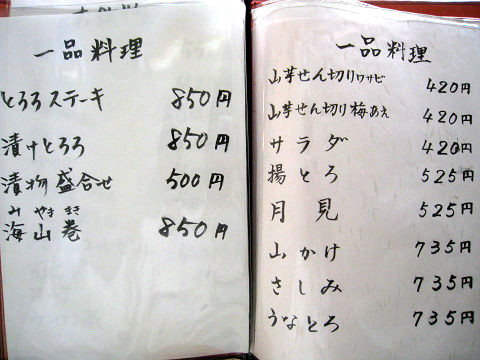 一品料理
とろろステーキ 850円
漬けとろろ 850円
漬物盛合せ 500円
みやまき
海山巻 850円
一品料理
山芋せん切りワサビ 420円
山芋せん切り梅あえ 420円
サラダ 420円
揚とろ 525円
月見 525円
山かけ 735円
さしみ 735円
うなとろ 735円